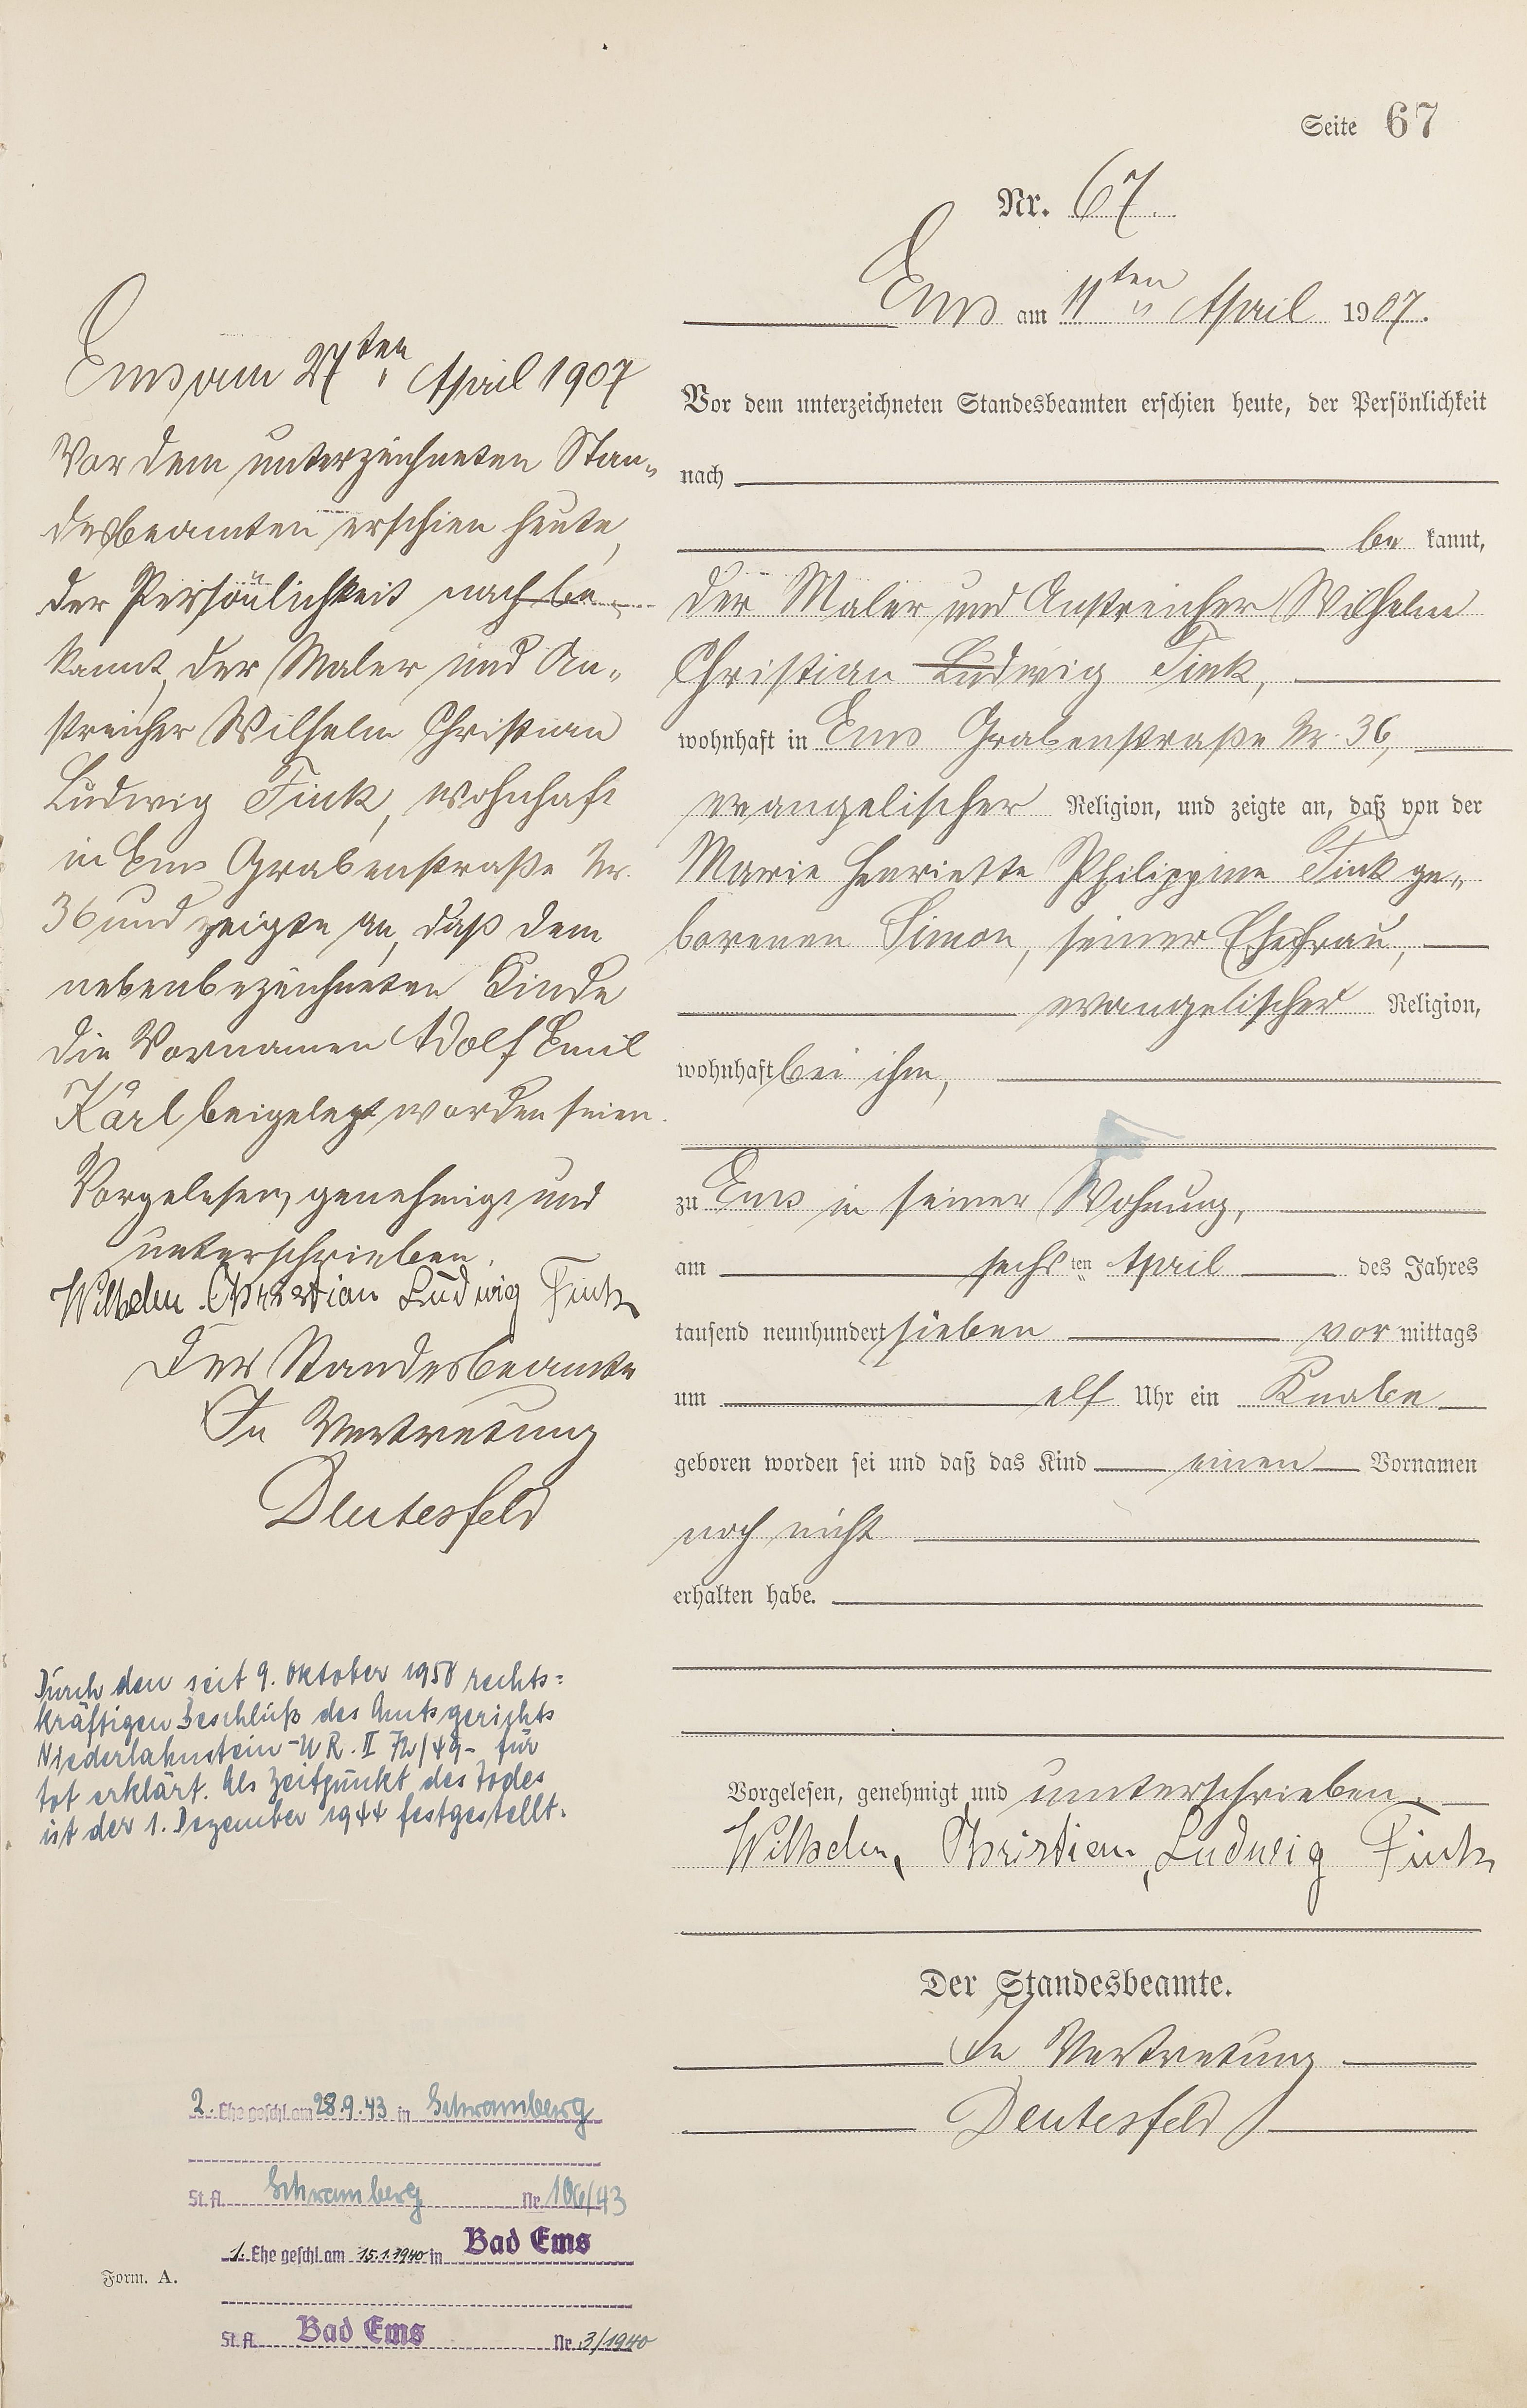 Seite 67
Nr. 67.
Ems am 11ten April 1907.
Vor dem unterzeichneten Standesbeamten erschien heute, der Persönlichkeit
nach
be kannt,
der Maler und Anstreicher Wilhelm
Christian Ludwig Fink,
wohnhaft in Ems Grabenstraße Nr. 36,
evangelischer Religion, und zeigte an, daß von der
Marie Henriette Philippine Fink ge-
borenen Simon, seiner Ehefrau,
evangelischer Religion,
wohnhaft bei ihm,
zu Ems in seiner Wohnung,
am sechsten April des Jahres
tausend neunhundert sieben vor mittags
um elf Uhr ein Knabe
geboren worden sei und daß das Kind einen Vornamen
noch nicht
erhalten habe.
Vorgelesen, genehmigt und unterschrieben.
Wilhelm, Christian, Ludwig Fink
Der Standesbeamte.
In Vertretung
Deutesfeld
Ems am 27ten April 1907
Vor dem unterzeichneten Stan-
desbeamten erschien heute,
der Persönlichkeit nach be-
kannt, der Maler und An-
streicher Wilhelm Christian
Ludwig Fink, wohnhaft
in Ems Grabenstraße Nr.
36 und zeigte an, daß dem
nebenbezeichneten Kinde
die Vornamen Adolf Emil
Karl beigelegt worden seien.
Vorgelesen, genehmigt und
unterschrieben.
Wilhelm Christian Ludwig Fink
Der Standesbeamte
In Vertretung
Deutesfeld
Durch den seit 9. Oktober 1950 rechts-
kräftigen Beschluß des Amtsgerichts
Niederlahnstein -UR. II 72/49- für
tot erklärt. Als Zeitpunkt des Todes
ist der 1. Dezember 1944 festgestellt.
2. Ehe geschl. am 28.9.43 in Schramberg
St. A. Schramberg Nr. 106/43
1. Ehe geschl. am 15.1.1940 in Bad Ems
St. A. Bad Ems Nr. 3/1940
Form. A.